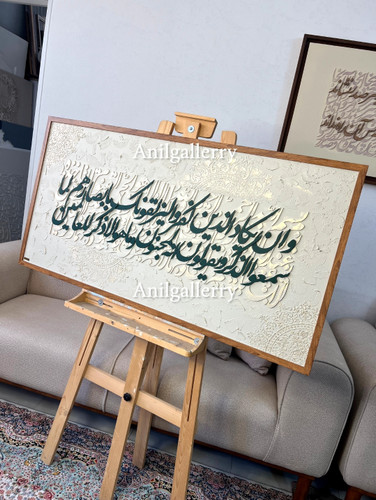 Anilgallerry
وان یکاد الذین کفروا لیزلقونک بابصارهم لما
سمعوا الذکر و یقولون انه لمجنون و ما هو الا ذکر للعالمین
Anilgallerry